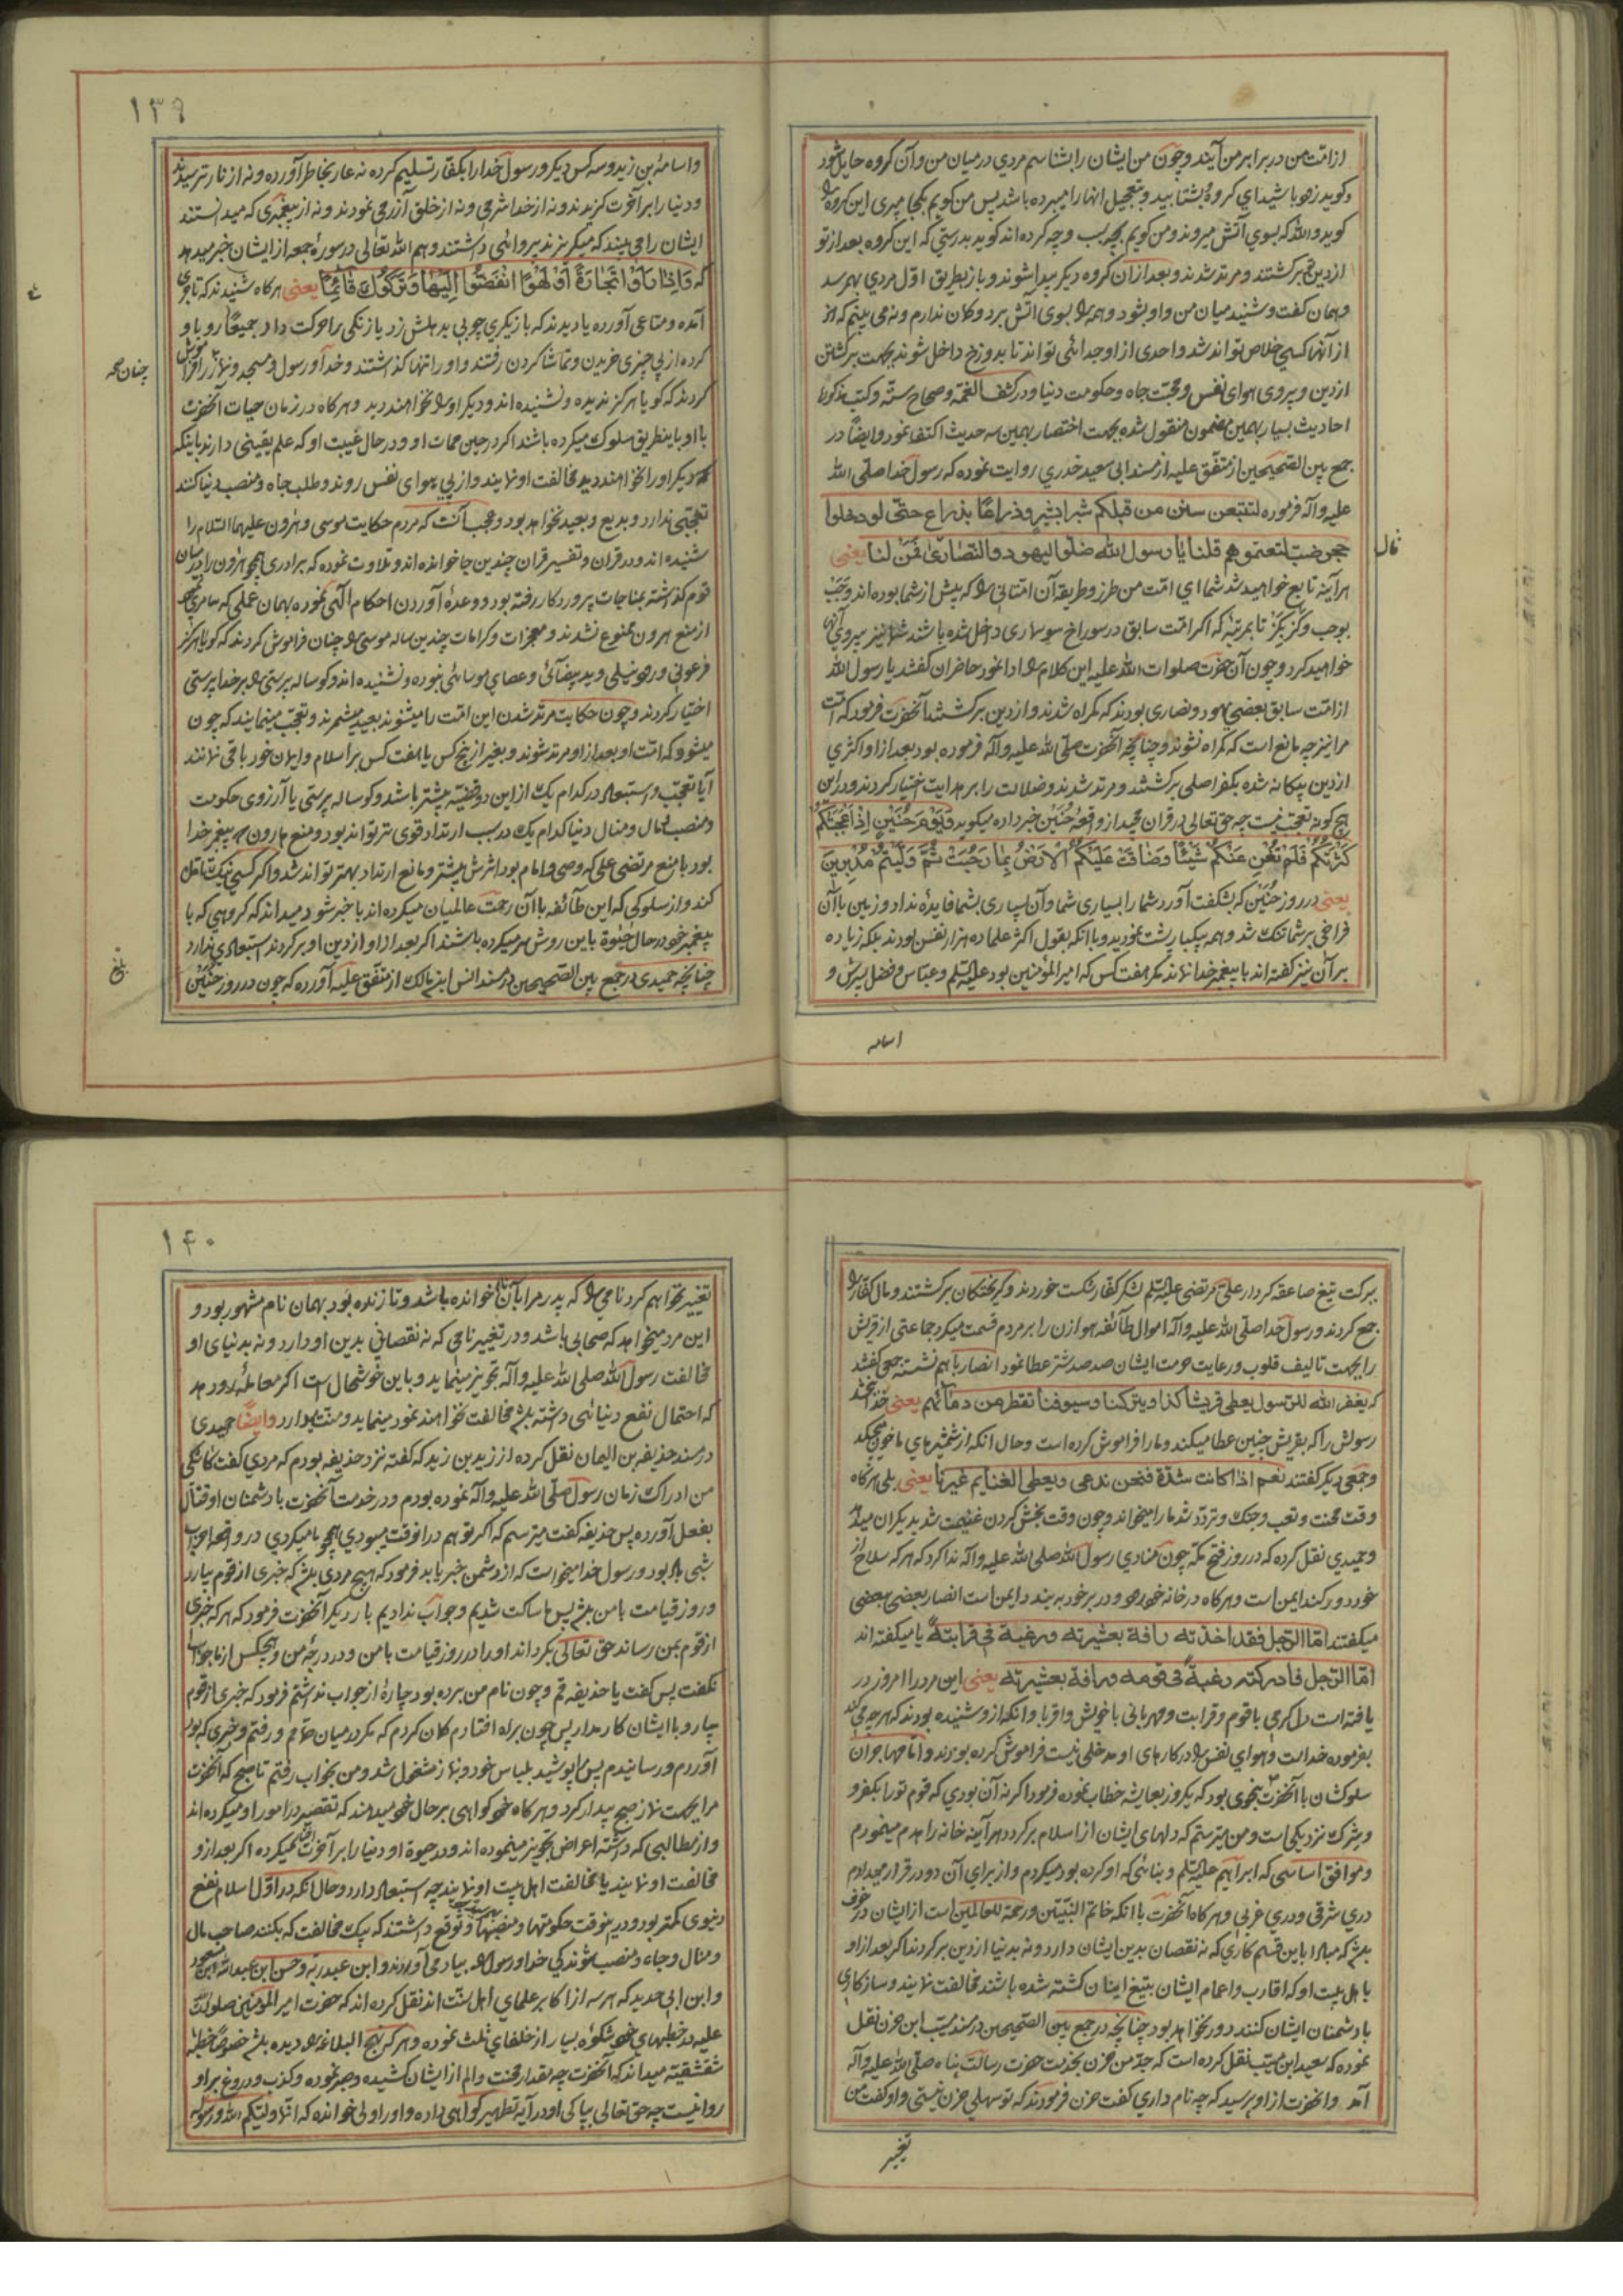 ازامّت من در برابر من آیند و چون من ایشان را بشناسم مردي درمیان من و آن کروه حایل شود
و کوید زهو باشید اي کروه بشتابید و بتعجیل انهارا میبرده باشد پس من کویم بکجا میبری این کروه را
کوید والله که بسوي آتش میروند و من کویم بچه سبب و چه کرده اند کوید بدرستي که این کروه بعد از تو
ازدین برکشتند و مرتد شدند و بعد ازان کروه دیکر پیدا شوند و باز بطریق اوّل مردي بهم رسد
و همان کفت و شنید میان من و او بشود و همه را بسوی آتش برد و کمان ندارم و نه می بینم که
از آنها کسي خلاص تواند شد و احدی از او جدائی تواند تا بدوزخ داخل شوند بجهت برکشتن
ازدین و پیروی هوای نفس و محبّت جاه و حکومت دنیا و در کشف الغمّه و صحاح ستّه و کتب مذکوره
احادیث بسیار بهمین مضمون منقول شده بجهت اختصار بهمین سه حدیث اکتفا نمود و ایضاً در
جمع بین الصّحیحین از متّفق علیه از مسند ابی سعید خدري روایت نموده که رسول خدا صلّی الله
علیه و آله فرموده لتتبعن سنن من قبلکم شبرا بشبر و ذراعًا بذراع حتّی لو دخلوا
جحر ضب لتبعتموهم قلنا یا رسول الله ضلّوا الیهود و النّصاریٰ فَمَن لنا یعنی
قال
هرآینه تابع خواهید شد شما ای امّت من طرز و طریقه آن امتانی را که پیش از شما بوده اند وَجَب
بوجب و کز بکز تا بمرتبهٔ که اکر امّت سابق در سوراخ سوسماری داخل شده باشد شما نیز پیروي آنها
خواهید کرد و چون آن حضرت صلوات الله علیه این کلام را ادا نمود حاضران کفتند یا رسول الله
ازامّت سابق بعضي یهود و نصاری بودند که کمراه شدند و از دین برکشتند آنحضرت فرمود که امّت
مرا نیز چه مانع است که کمراه نشوند و چنانچه آنحضرت صلّی الله علیه و آله فرموده بود بعد از او اکثري
ازدین بیکانه شده بکفر اصلی برکشتند و مرتد شدند و ضلالت را بر هدایت اختیار کردند و دراین
هیچ کونه تعجّب نیست چه حق تعالی در قران مجید از واقعهٔ حُنَین خبر داده میکوید وَیَوْمَ حُنَیْنٍ اِذْ اَعْجَبَتْکُمْ
کَثْرَتُکُمْ فَلَمْ تُغْنِ عَنْکُمْ شَیْئًا وَضَاقَتْ عَلَیْکُمُ الْاَرْضُ بِمَا رَحُبَتْ ثُمَّ وَلَّیْتُمْ مُدْبِرِینَ
یعنی در روز حُنَین که بشکفت آورد شما را بسیاری شما و آن بسیاری بشما فایدهٔ نداد و زمین با آن
فراخی بر شما تنک شد و همه بیکبار پشت نمودید و با انکه بقول اکثر علما ده هزار نفس بودند بلکه زیاده
بر آن نیز کفته اند با پیغمبر خدا نماند مکر هفت کس که امیرالمؤمنین بود علیه السّلم و عبّاس و فضل پسرش و
اسامه
۱۳۹
و اسامهٔ بن زید و سه کس دیکر و رسول خدا را بکفّار تسلیم کرده نه عار بخاطر آورده و نه از نار ترسیدند
و دنیا را بر آخرت کزیدند و نه از خدا شرمی و نه از خلق آزرمی نمودند و نه از پیغمبری که میدانستند
ایشان را می بیند که میکریزند پروائی داشتند و هم الله تعالی در سورهٔ جمعه از ایشان خبر میدهد
که وَاِذَا رَاَوْا تِجَارَةً اَوْ لَهْوًا انْفَضُّوا اِلَیْهَا وَتَرَکُوكَ قَائِمًا یعنی هرکاه شنیدند که تاجری
آمده و متاعی آورده یا دیدند که بازیکری چوبی بدهلش زد یا زنکی را حرکت داد جمیعًا رو باو
کرده از پی چیزی خریدن و تماشا کردن رفتند و او را تنها کذاشتند و خدا و رسول و مسجد و نماز را فراموش
چنان
کردند که کویا هرکز ندیده و نشنیده اند و دیکر او را نخواهند دید و هرکاه در زمان حیات آنحضرت
با او باینطریق سلوك میکرده باشند اکر در حین ممات او و در حال غیبت او که علم یقینی دارند باینکه
دیکر او را نخواهند دید مخالفت او نمایند و از پی هوای نفس روند و طلب جاه و منصب دنیا کنند
تعجّبی ندارد و بدیع و بعید نخواهد بود و عجب آنست که مردم حکایت موسی و هرون علیهما السّلام را
شنیده اند و در قران و تفسیر قران چندین جا خوانده اند و تلاوت نموده که برادری همچو هرون را درمیان
قوم کذاشته بمناجات پروردکار رفته بود و وعدهٔ آوردن احکام الٓهی نموده بهمان عملی که سامری
از منع هرون ممنوع نشدند و معجزات و کرامات چندین ساله موسی را چنان فراموش کردند که کویا هرکز
فرعونی و رود نیلی و ید بیضآئی و عصای موسائی نبوده و نشنیده اند و کوساله پرستی را بر خدا پرستی
اختیار کردند و چون حکایت مرتد شدن این امّت را میشنوند بعید میشمرند و تعجّب مینمایند که چون
میشود که امّت او بعد از او مرتد شوند و بغیر از پنج کس یا هفت کس بر اسلام و ایمان خود باقی نمانند
آیا تعجّب و استبعاد در کدام یك از این دو قضیّه بیشتر باشد و کوساله پرستی یا آرزوی حکومت
و منصب و مال و منال دنیا کدام یك در سبب ارتداد قوی تر تواند بود و منع هارون که پیغمبر خدا
بود با منع مرتضی علی که وصی و امام بود اثرش بیشتر و مانع ارتداد بهتر تواند شد و اکر کسی نیك تامّل
کند و از سلوکی که این طآئفه با آن رحمت عالمیان میکرده اند با خبر شود میداند که کروهی که با
پیغمبر خود در حال حیٰوة باین روش سر میکرده باشند اکر بعد از او از دین او برکردند استبعادی ندارد
چنانچه حمیدی در جمع بین الصّحیحین در مسند انس ابن مالك از متّفق علیه آورده که چون در روز حُنَین
بلغ
ببرکت تیغ صاعقه کردار علی مرتضی علیه السّلم لشکر کفّار شکست خوردند و کریختکان برکشتند و مال کفّار را
جمع کردند و رسول خدا صلّی الله علیه و آله اموال طآئفه هوازن را بر مردم قسمت میکرد جماعتی از قریش
را بجهت تالیف قلوب و رعایت حرمت ایشان صد صد شتر عطا نمود انصار باهم نشسته جمعی کفتند
که یغفر الله للرّسول یعطی قریشا کذا و یترکنا و سیوفنا تقطر من دمآئهم یعنی خدا ببخشد
رسولش را که بقریش چنین عطا میکند و ما را فراموش کرده است و حال انکه از شمشیرهاي ما خون میچکد
و جمعی دیکر کفتند نعم اذا کانت شدّة فنحن ندعی و یعطی الغنایم غیرنا یعنی بلی هرکاه
وقت محنت و تعب و جنك و تردّد شد ما را میخواند و چون وقت بخش کردن غنیمت شد بدیکران میدهد
و حمیدي نقل کرده که در روز فتح مکّه چون منادي رسول الله صلی الله علیه و آله ندا کرد که هرکه سلاح از
خود دور کند ایمن است و هرکاه در خانه خود رود و در بر خود به بندد ایمن است انصار بعضی ببعضی
میکفتند امّا الرّجل فقد اخذته رافة بعشیرته و رغبة فی قرابته یا میکفته اند
امّا الرّجل فادرکته رغبةً فی قومه و رافة بعشیرته یعنی این مرد را امروز در
یافته است دل کرمی با قوم و قرابت و مهربانی با خویش و اقربا و انکه از و شنیده بودند که هرچه میکند
بفرموده خداست و هوای نفس را در کارهای او مدخلی نیست فراموش کرده بودند و امّا مهاجران
سلوکشان با آنحضرت بنحوی بود که یکروز بعایشه خطاب نموده فرمود اکر نه آن بودي که قوم تو را بکفر و
و شرك نزدیکی است و من میترسم که دلهای ایشان از اسلام برکردد هرآینه خانه را هدم مینمودم
و موافق اساسی که ابراهیم علیه السّلم و بنائی که او کرده بود میکردم و از برای آن دو در قرار میدادم
دري شرقی و دري غربی و هرکاه آنحضرت با انکه خاتم النّبیّین و رحمة للعالمین است از ایشان در خوف
باشد که مبادا باین قسم کاري که نه نقصان بدین ایشان دارد و نه بدنیا از دین برکردند اکر بعد از او
با اهل بیت او که اقارب و اعمام ایشان بتیغ اینان کشته شده باشند مخالفت نمایند و سازکاري
با دشمنان ایشان کنند دور نخواهد بود چنانچه در جمع بین الصّحیحین در مسند مسیّب ابن حزن نقل
نموده که سعید ابن مسیّب نقل کرده است که جدّ من حزن بخدمت حضرت رسالت پناه صلّی الله علیه و آله
آمد و انحضرت از او پرسید که چه نام داري کفت حزن فرمودند که تو سهلي حزن نیستی و او کفت من
تغییر
۱۴۰
تغییر نخواهم کرد نامي را که پدر مرا بآن نام خوانده باشد و تا زنده بود بهمان نام مشهور بود و
این مرد میخواهد که صحابی باشد و در تغییر نامی که نه نقصانی بدین او دارد و نه بدنیای او
مخالفت رسول الله صلی الله علیه و آله تجویز مینماید و باین خوشحال است اکر معامله رو دهد
که احتمال نفع دنیائی داشته باشد مخالفت نخواهند نمود مینماید و منّت دارد وایضًا حمیدی
در مسند حذیفه بن الیمان نقل کرده از زید بن زید که کفته نزد حذیفه بودم که مردي کفت کاشکی
من ادراك زمان رسول صلّی الله علیه و آله نموده بودم و در خدمت آنحضرت با دشمنان او قتال
بفعل آورده پس حذیفه کفت میترسم که اکر تو هم در انوقت میبودي همچو ما میکردي در واقعه احزاب
شبی باد بود و رسول خدا میخواست که از دشمن خبر یابد فرمود که هیچ مردی باشد که خبری از قوم بیارد
و روز قیامت با من باشد پس ما ساکت شدیم و جواب ندادیم بار دیکر آنحضرت فرمود که هرکه خبری
از قوم بمن رساند حق تعالی بکرداند او را در روز قیامت با من و در درجهٔ من و هیچکس از ما جواب
نکفت پس کفت یا حذیفه قم و چون نام من برده بود چارهٔ از جواب نداشتم فرمود که خبری از قوم
بیار و با ایشان کار مدار پس چون براه افتادم کمان کردم که مکر در میان حمّام و رفتم و خبری که بود
آوردم و رسانیدم پس مرا پوشید بلباس خود و بنماز مشغول شد و من بخواب رفتم تا صبح که آنحضرت
مرا بجهت نماز صبح بیدار کرد و هرکاه خود کواهی بر حال خود میدهند که تقصیر در امور او میکرده اند
و از مطالبی که داشته اعراض تجویز مینموده اند و در حیوة او دنیا را بر آخرت اختیار میکرده اکر بعد از و
مخالفت او نمایند یا مخالفت اهل بیت او نمایند چه استبعاد دارد و حال انکه در اوّل اسلام نفع
دنیوی کمتر بود و در اینوقت حکومتها و منصبها و توقّع داشتند که بیك مخالفت که بکنند صاحب مال
و منال و جاه و منصب شوند کی خدا و رسول را بیاد می آوردند و ابن عبد ربّه و حسن ابن عبدالله ابن مسعود
و ابن ابی حدید که هر سه از اکابر علمای اهل سنّت اند نقل کرده اند که حضرت امیر المؤمنین صلوات الله
علیه در خطبهای خود شکوه بسیار از خلفای ثلث نموده و هرکه نهج البلاغه را دیده باشد خصوصًا خطبهٔ
شقشقیّه میداند که آنحضرت چه مقدار محنت و الم از ایشان کشیده و صبر نموده و کذب و دروغ بر او
روا نیست چه حق تعالی بپاکی او در آیه تطهیر کواهی داده و او را ولی خوانده که انّما ولیّکم الله و رسوله